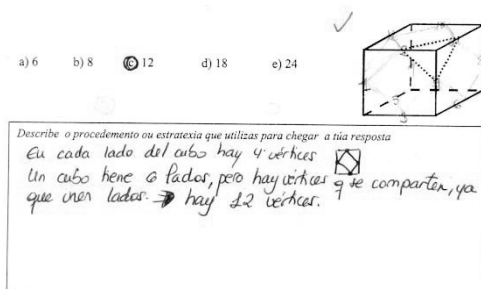 a) 6 b) 8 c) 12 d) 18 e) 24
Describe o procedemento ou estratexia que utilizas para chegar a túa resposta
En cada lado del cubo hay 4 vértices
Un cubo tiene 6 lados, pero hay vértices q se comparten, ya
que unen lados. → hay 12 vértices.